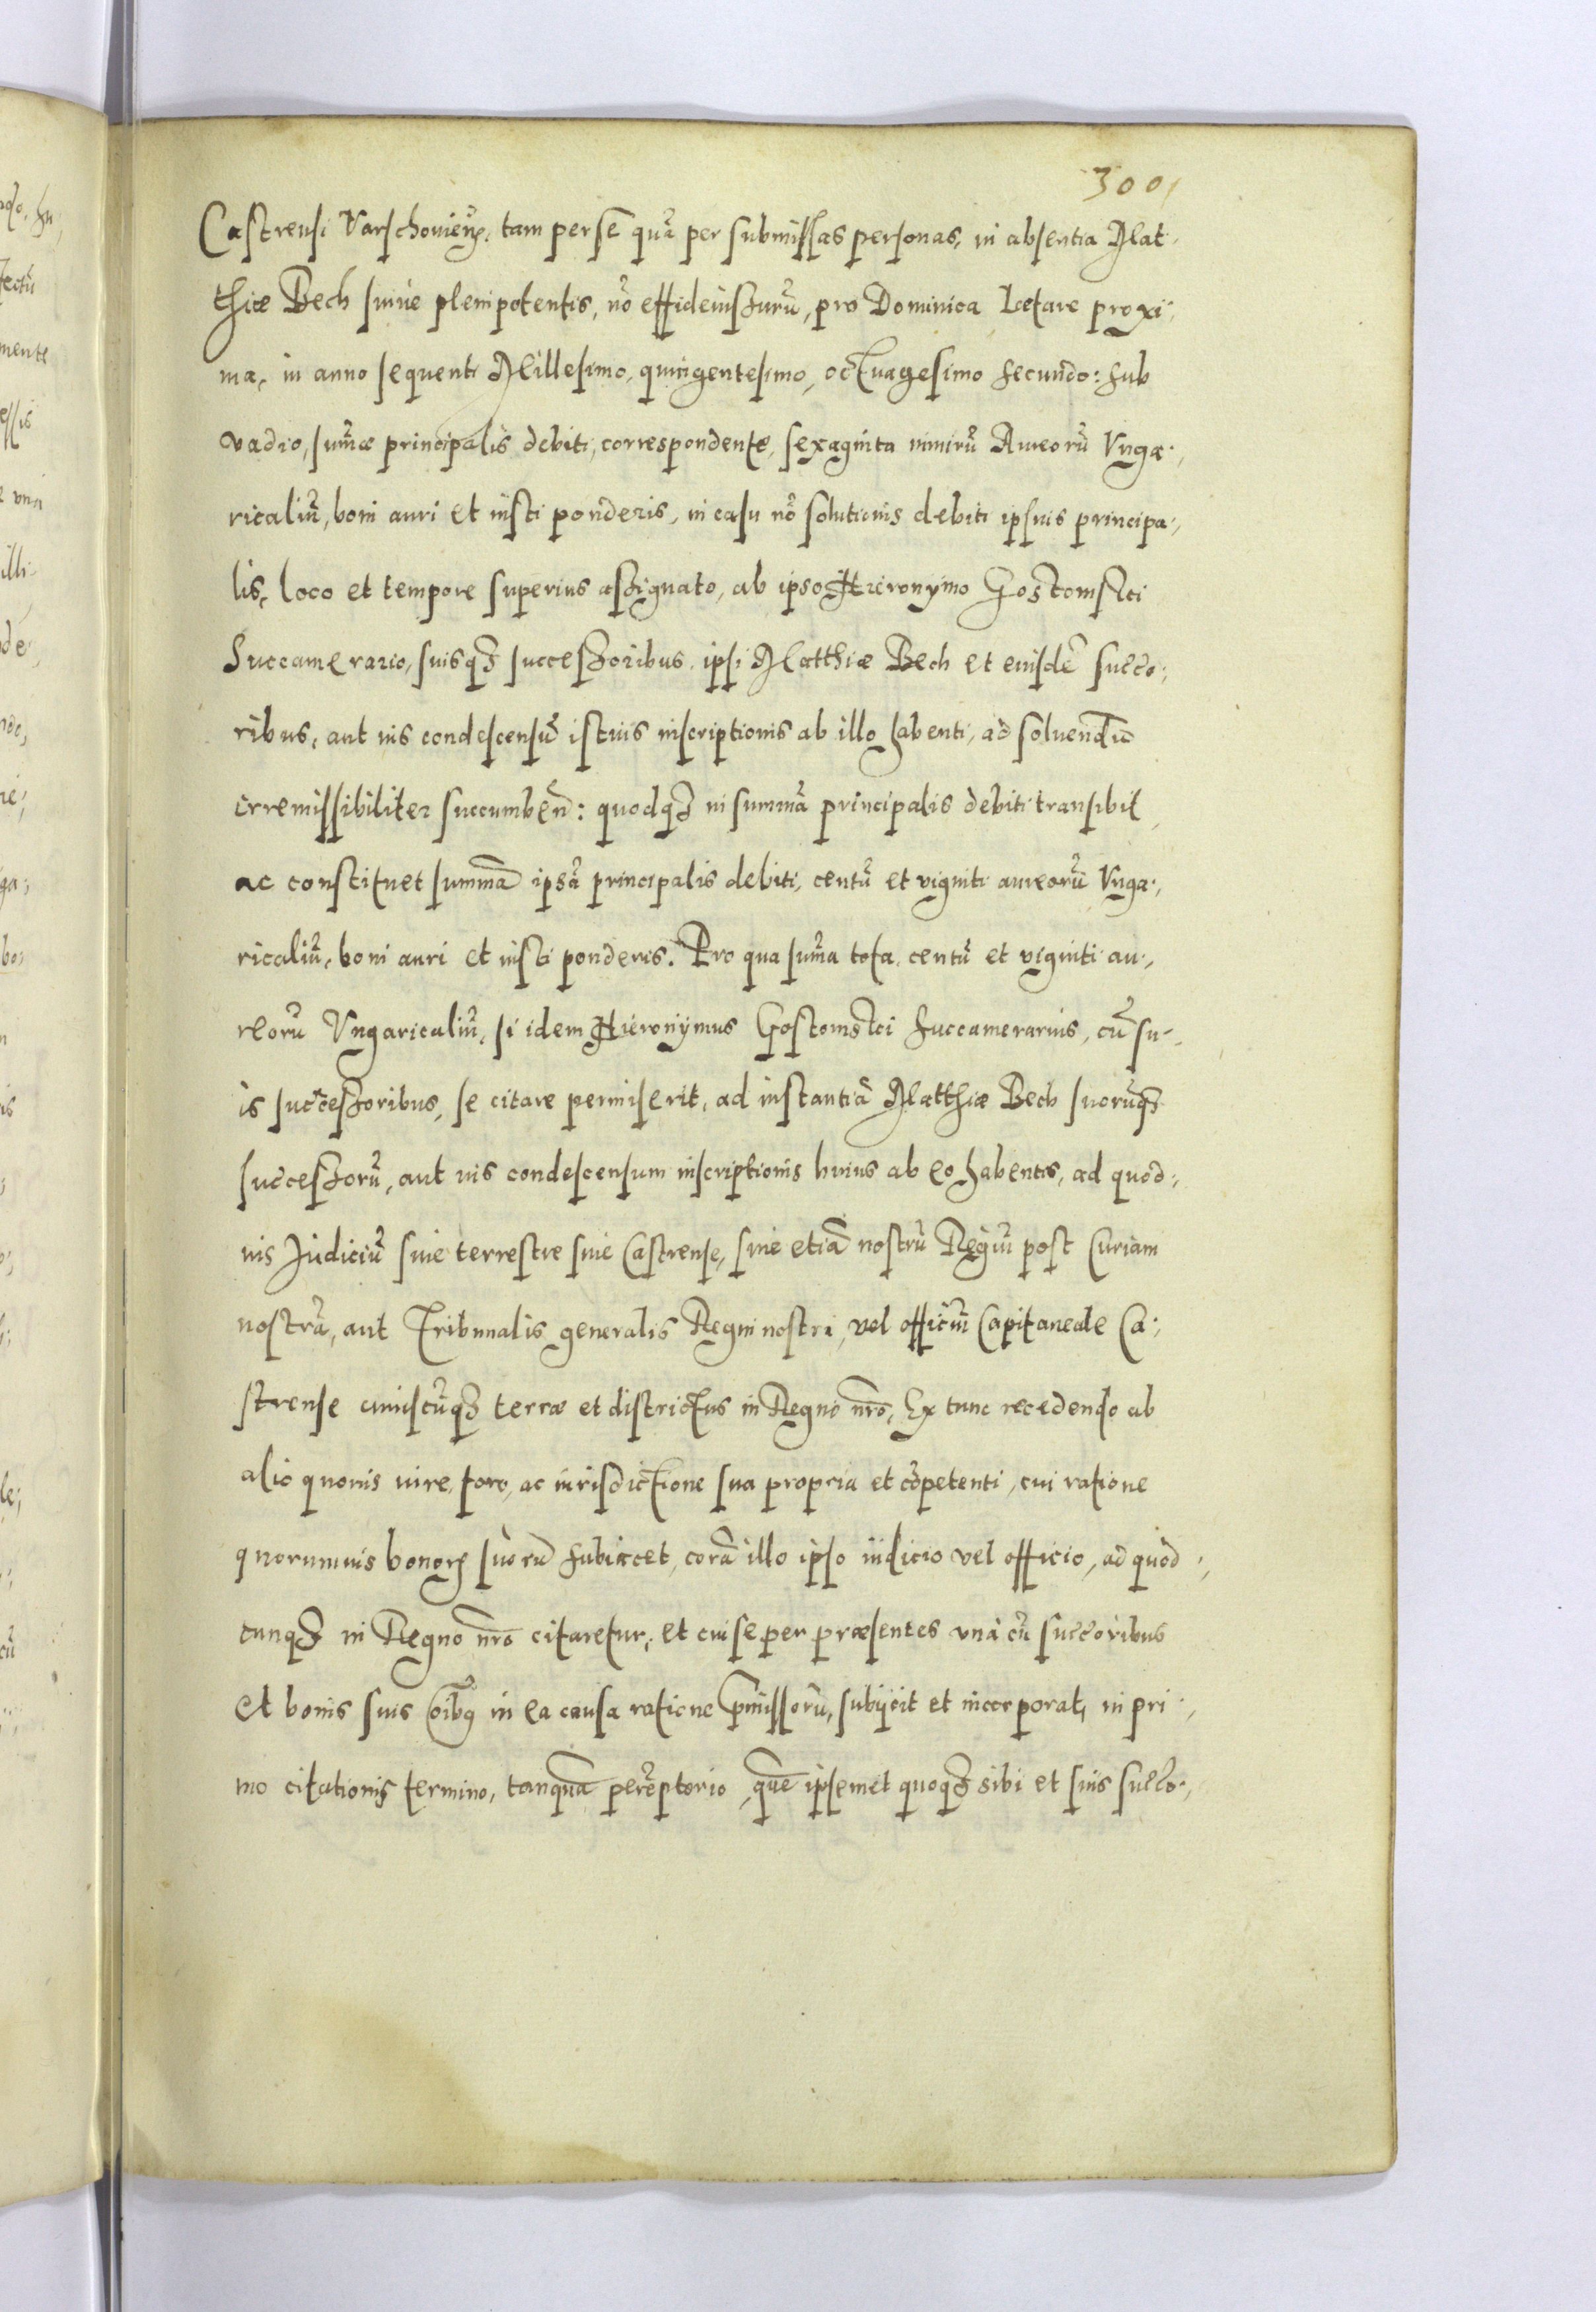 300
Castrensi Varschovien̄, tam per se quā per submissas personas, in absentia Mat-
thiæ Bech suiue plenipotentis, nō effideiussurū, pro Dominica Lætare proxi-
ma, in anno sequenti Millesimo, quingentesimo, octuagesimo secundo: sub
vadio, sum̄æ principalis debiti, correspondente, sexaginta nimirū Aureorū Vnga-
ricaliū, boni auri et iusti ponderis, in casu nō solutionis debiti ipsuis principa-
lis, loco et tempore superius assignato, ab ipso Hieronymo Gostomski
Succamerario, suisq3 successoribus, ipsi Matthiæ Bech et eiusdē succo-
ribus, aut uis condescensū istius inscriptionis ab illo habenti, ad soluendū
irremissibiliter succumben̄: quodq3 in summā principalis debiti transibit
ac constituet summā ipsā principalis debiti, centū et viginti aureorū Vnga-
ricaliū, boni auri et iusti ponderis. Pro qua sum̄a tota, centū et viginti au-
reorū Vngaricaliū, si idem Hieronymus Gostomski succamerarius, cū su-
is successoribus, se citare permiserit, ad instantiā Matthiæ Bech suorūq3
successorū, aut uis condescensum inscriptionis huius ab eo habentis, ad quod-
uis Judiciū siue terrestre siue Castrense, siue etiā nostrū Regiū post Curiam
nostrā, aut Tribunalis generalis Regni nostri, vel officiū Capitaneale Ca-
strense cuiuscūq3 terræ et districtus in Regno nr̄o, Ex tunc recedendo ab
alio quouis iure, foro, ac iurisdictione sua propria et cōpetenti, cui ratione
quorumuis bonoꝝ suorū subiacet, corā illo ipso iudicio vel officio, ad quod-
cunq3 in Regno nr̄o citaretur, et cui se per præsentes vnà cū succoribus
et bonis suis oīb9 in ea causa ratione p̄missorū, subijcit et incorporat, in pri-
mo citationis termino, tanquā perēptorio, quē ipsemet quoq3 sibi et suis succo-